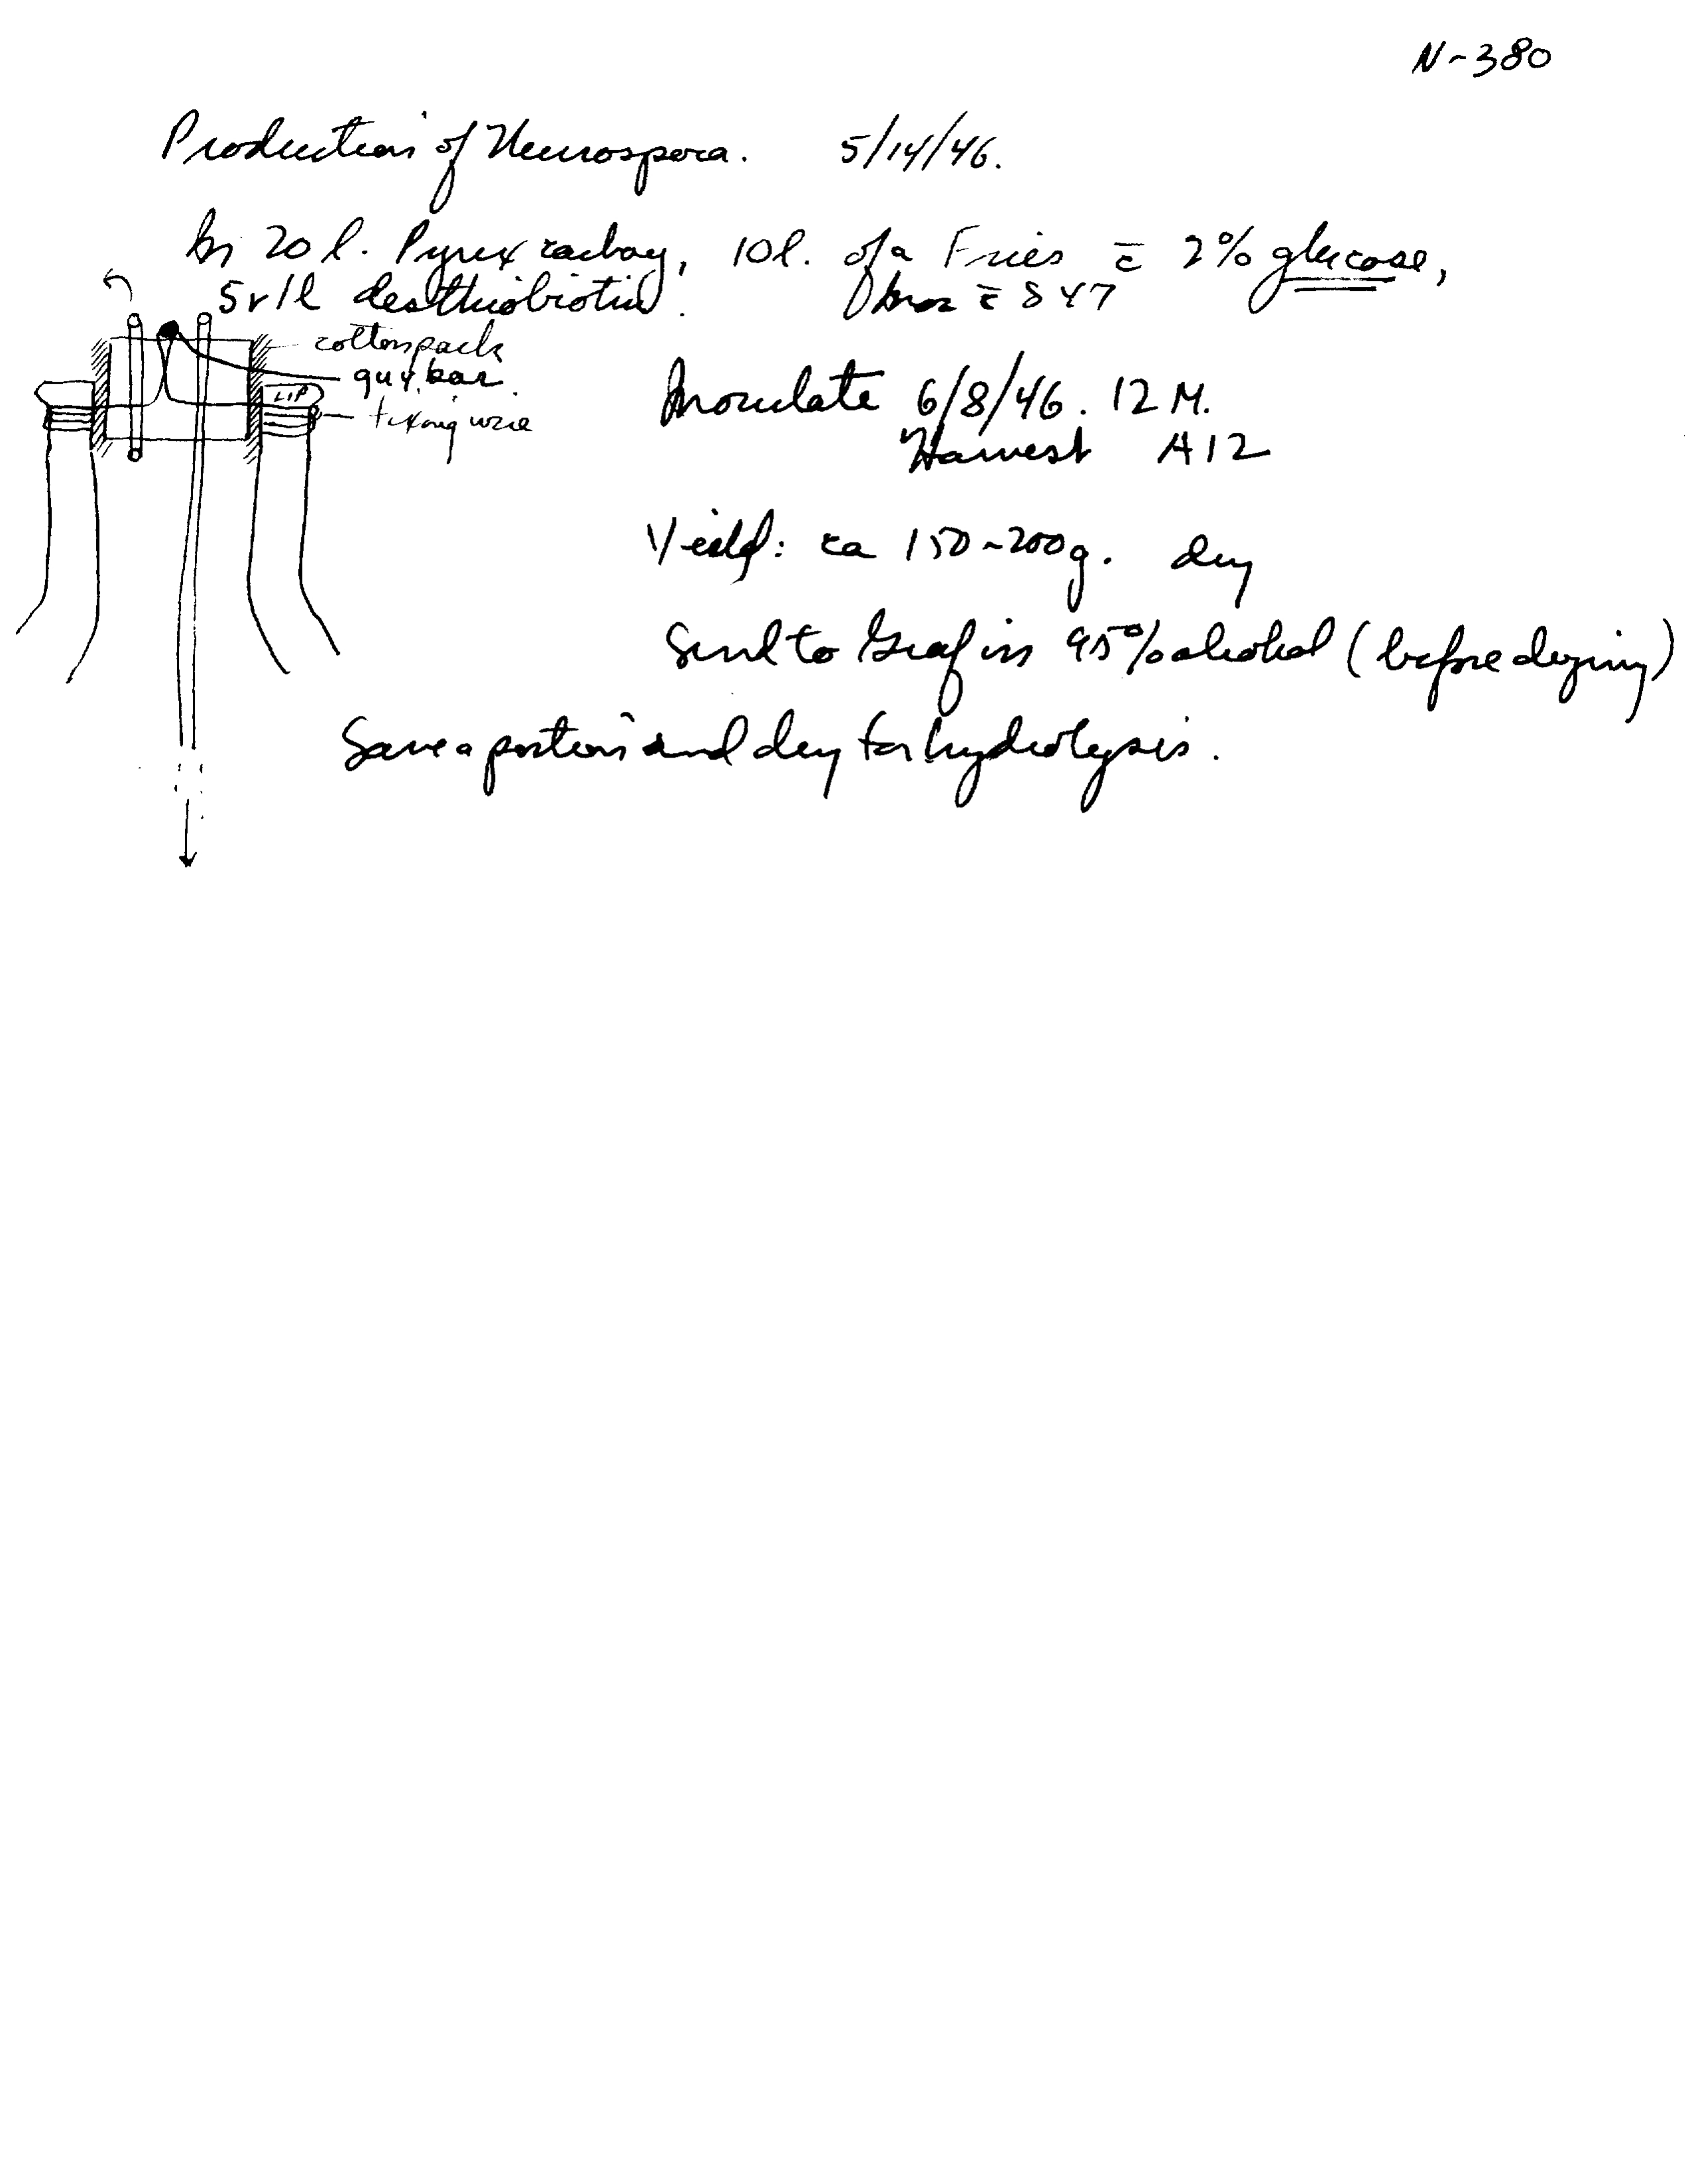 N-380
Production of Neurospora. 5/14/46.
In 20 l. Pyrex carboy, 10 l. of a Fries c̄ 2% glucose,
5γ/l desthiobiotin. c̄ 847
cotton pack
guy bar
LIP
fixing wire
Inoculate 6/8/46. 12 M.
Harvest A12
Yield: ca 150-200g. dry
Send to Graf in 95% alcohol (before drying)
Save a portion and dry for hydrolysis.